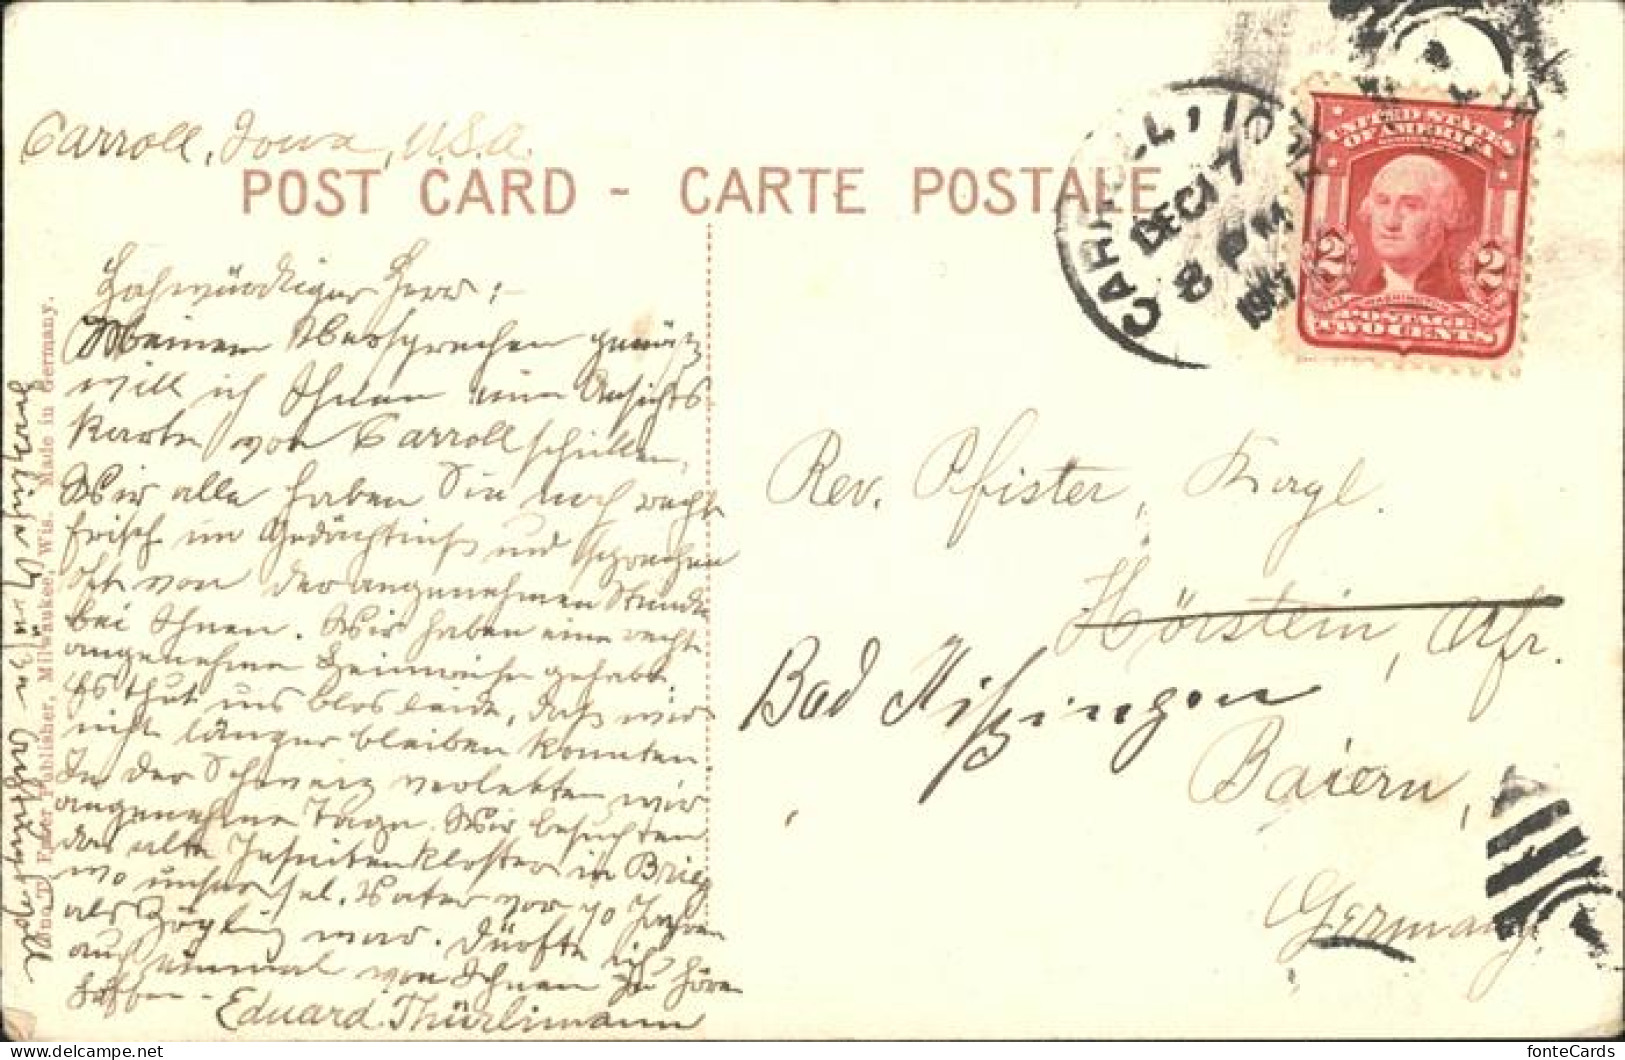 Carroll, Iowa, U.S.A.
POST CARD - CARTE POSTALE
CARROLL, IOWA
DEC 17
8 PM
1907
UNITED STATES
OF AMERICA
2 2
WASHINGTON
POSTAGE
TWO CENTS
Hochwürdiger Herr :-
Meinem Versprechen gemäß
will ich Ihnen eine Ansichts
Karte von Carroll schicken.
Wir alle haben Sie noch recht
frisch im Gedächtniß und sprechen
oft von der angenehmen Stunde
bei Ihnen. Wir haben eine recht
angenehme Heimreise gehabt.
Es thut uns blos leid, daß wir
nicht länger bleiben konnten.
In der Schweiz verlebten wir
angenehme Tage. Wir besuchten
das alte Jesuitenkloster in Brieg
wo unser sel. Vater vor 70 Jahren
als Zögling war. Dürfte ich
auch einmal von Ihnen zu hören
hoffen -
Eduard Thürlimann
Rev. Pfister, Kurgl.
Hörstein, Ufr.
Bad Kißingen
Baiern,
Germany
Publisher, Milwaukee, Wis. Made in Germany.
fonteCards
www.delcampe.net